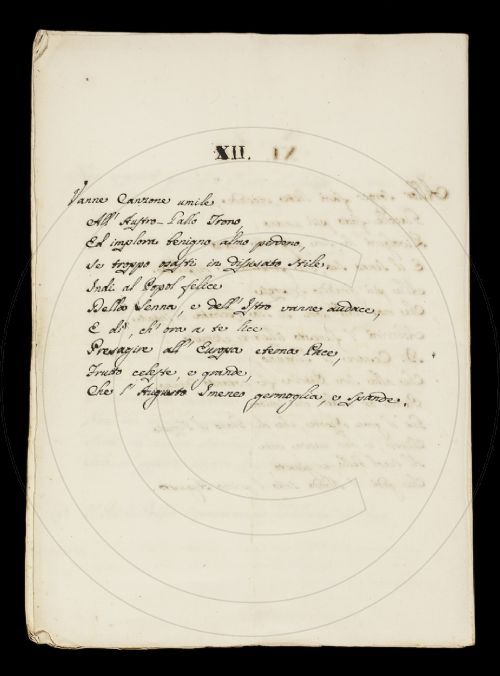 XII.
Vanne Canzone umile
All' Austro-Gallo Trono
Ed implora benigno almo perdono,
Se troppo osasti in disusato stile.
Indi al Popol felice
Della Senna, e dell' Istro vanne audace,
E dì, ch' ora a te lice
Presagire all' Europa eterna Pace,
Frutto celeste, e grande,
Che l' Augusto Imeneo germoglia, e spande.